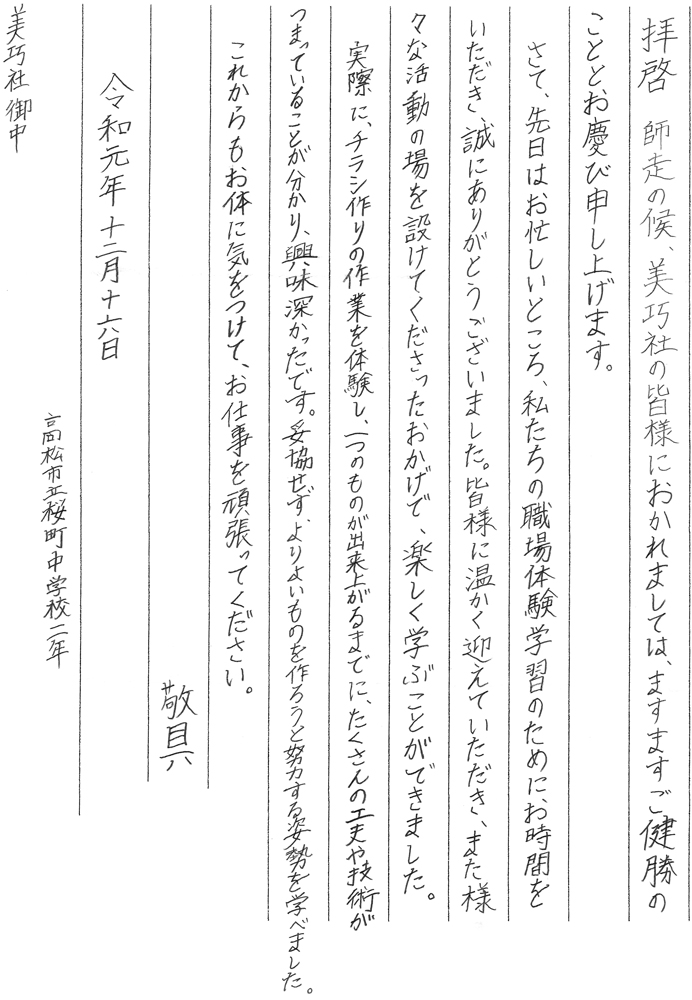 拝啓　師走の候、美巧社の皆様におかれましては、ますますご健勝の
こととお慶び申し上げます。
さて、先日はお忙しいところ、私たちの職場体験学習のためにお時間を
いただき、誠にありがとうございました。皆様に温かく迎えていただき、また様
々な活動の場を設けてくださったおかげで、楽しく学ぶことができました。
実際に、チラシ作りの作業を体験し、一つのものが出来上がるまでに、たくさんの工夫や技術が
つまっていることが分かり、興味深かったです。妥協せず、よりよいものを作ろうと努力する姿勢を学べました。
これからもお体に気をつけて、お仕事を頑張ってください。
敬具
令和元年十二月十六日
高松市立桜町中学校二年
美巧社御中